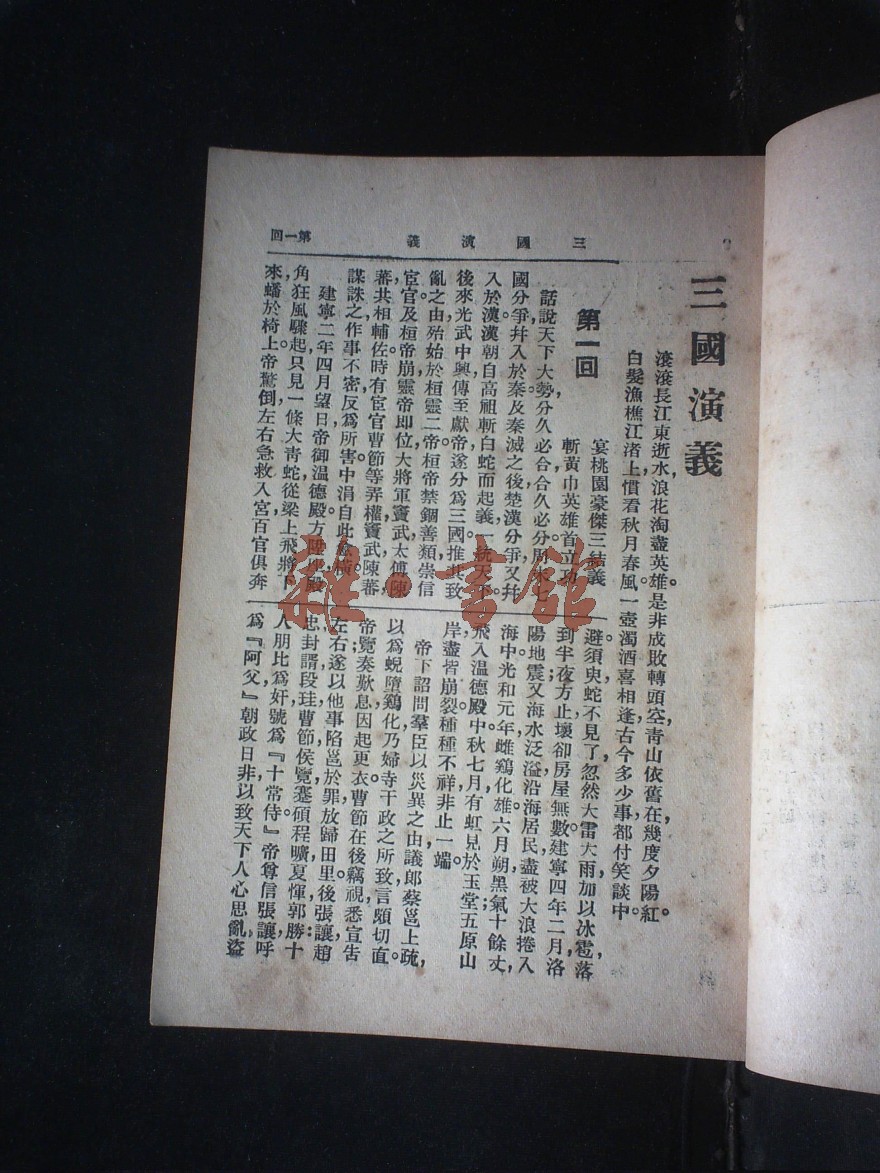 三國演義
第一回
三國演義
滾滾長江東逝水，浪花淘盡英雄。是非成敗轉頭空，青山依舊在，幾度夕陽紅。
白髮漁樵江渚上，慣看秋月春風。一壺濁酒喜相逢，古今多少事，都付笑談中。
第一回
宴桃園豪傑三結義
斬黃巾英雄首立功
話說天下大勢，分久必合，合久必分。周末七
國分爭，并入於秦。及秦滅之後，楚漢分爭，又并
入於漢。漢朝自高祖斬白蛇而起義，一統天下。
後來光武中興，傳至獻帝，遂分爲三國。推其致
亂之由，殆始於桓靈二帝。桓帝禁錮善類，崇信
宦官。及桓帝崩，靈帝即位，大將軍竇武，太傅陳
蕃，共相輔佐。時有宦官曹節等弄權，竇武陳蕃
謀誅之，作事不密，反爲所害。中涓自此愈橫。
建寧二年四月望日，帝御溫德殿。方陞座，殿
角狂風驟起，只見一條大青蛇，從梁上飛將下
來，蟠於椅上。帝驚倒，左右急救入宮，百官俱奔
避。須臾，蛇不見了。忽然大雷大雨，加以冰雹，落
到半夜方止，壞卻房屋無數。建寧四年二月，洛
陽地震；又海水泛溢，沿海居民，盡被大浪捲入
海中。光和元年，雌鷄化雄。六月朔，黑氣十餘丈，
飛入溫德殿中。秋七月，有虹見於玉堂；五原山
岸，盡皆崩裂。種種不祥，非止一端。
帝下詔問羣臣以災異之由，議郎蔡邕上疏，
以爲蜺墮鷄化，乃婦寺干政之所致，言頗切直。
帝覽奏歎息，因起更衣。曹節在後竊視，悉宣告
左右；遂以他事陷邕於罪，放歸田里。後張讓，趙
忠，封諝，段珪，曹節，侯覽，蹇碩，程曠，夏惲，郭勝十
人朋比爲奸，號爲『十常侍』。帝尊信張讓，呼
爲『阿父』，朝政日非，以致天下人心思亂，盜
雜·書館